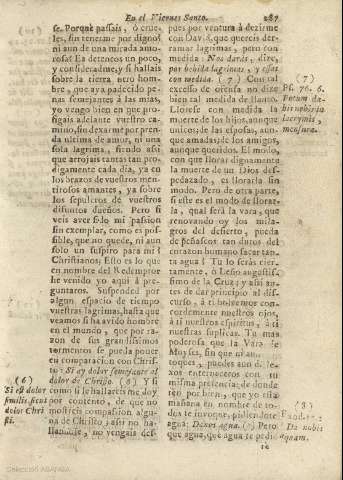 En el Viernes Santo. 287
se. Porquè passais, ò crue-
les, sin tenerme por dignos
ni aun de una mirada amo-
rosa? Ea deteneos un poco,
y consideradme, y si hallais
sobre la tierra otro hom-
bre, que aya padecido pe-
nas semejantes à las mias,
yo vengo bien en que pro-
sigais adelante vuestro ca-
mino, sin dexarme por pren-
da ultima de amor, ni una
sola lagrima, siendo assi
que arrojais tantas tan pro-
digamente cada dia, ya en
los brazos de vuestros men-
tirosos amantes, ya sobre
los sepulcros de vuestros
difuntos dueños. Pero si
veis aver sido mi passion
sin exemplar, como es pos-
sible, que no quede, ni aun
solo un suspiro para mi?
Christianos; Esto es lo que
en nombre del Redemptor
he venido yo aqui à pre-
guntaros. Suspended por
algun espacio de tiempo
vuestras lagrimas, hasta que
veamos si ha avido hombre
en el mundo, que por ra-
zon de sus grandissimos
tormentos se pueda poner
en comparacion con Chris-
to: Si ay dolor semejante al
dolor de Christo. (6) Y si
como si le hallareis me doy
por contento, de que no
mostreis compassion algu-
na de Christo; assi no ha-
llandole, no vengais des-
(6)
Si est dolor
similis sicut
dolor Chri
sti.
pues por ventura à dezirme
con David, que quereis der-
ramar lagrimas, pero con
medida: Nos daràs, dize,
por bebida lagrimas, y essas
con medida. (7) Con tal
excesso de ofensa no dize
bien tal medida de llanto.
Llorese con medida la
muerte de los hijos, aunque
unicos; de las esposas, aun-
que amadas; de los amigos,
aunque queridos. El modo,
con que llorar dignamente
la muerte de un Dios des-
pedazado, es llorarla sin
modo. Pero de otra parte,
si este es el modo de llorar-
la, qual serà la vara, que
renovando oy los mila-
gros del desierto, pueda
de peñascos tan duros del
corazon humano sacar tan-
ta agua? Tu lo seràs cier-
tamente, ò Leño augustis-
simo de la Cruz; y assi an-
tes de dar principio al dis-
curso, à ti bolvemos con-
cordemente nuestros ojos,
à ti nuestros espiritus, à ti
nuestras suplicas. Tu mas
poderosa que la Vara de
Moyses, sin que ni aun
toques, puedes aun de
lexos enternecernos con tu
misma presencia; de donde
reo por bien, que yo esta
mañana en nombre de to-
dos te invoque, pidiendote
agua: Danos agua. (8) Pero
que agua, què agua te pedio
(7)
Ps. 76. 6.
Potum da-
bis nobis in
lacrymis,
mensura.
(8)
Exod. 17.
Da nobis
aquam.